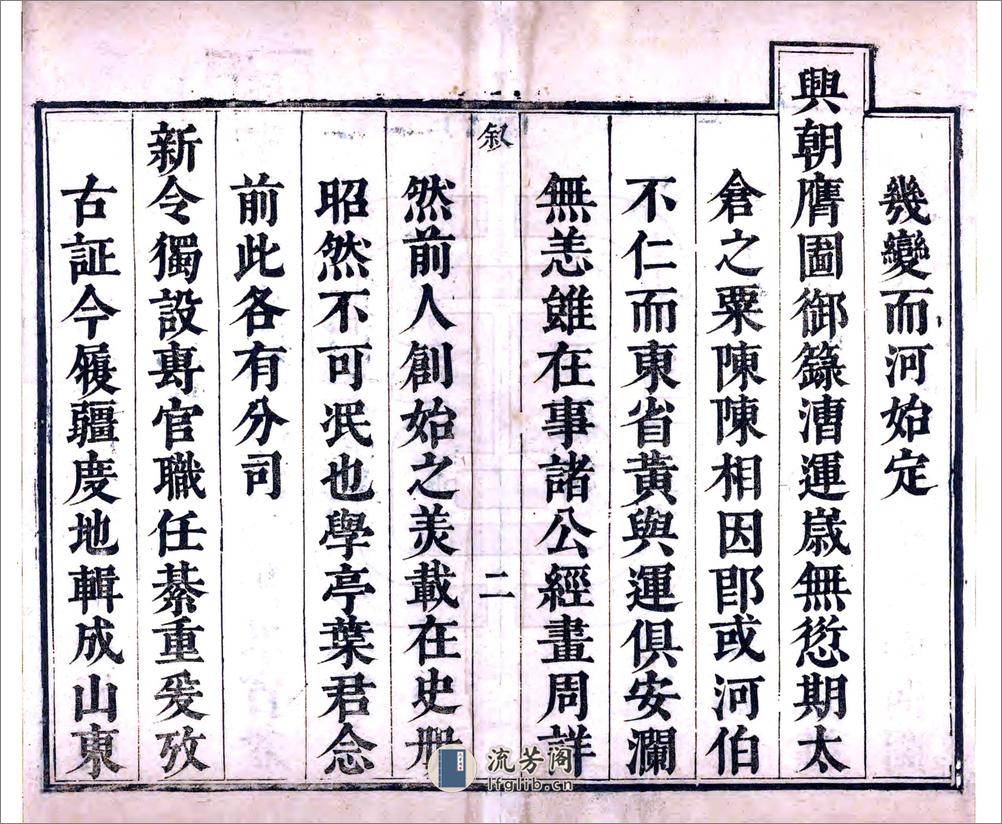 幾變而河始定
興朝膺圖御籙漕運嵗無愆期太
倉之粟陳陳相因卽或河伯
不仁而東省黃與運俱安瀾
無恙雖在事諸公經畫周詳
叙
二
然前人創始之美載在史册
昭然不可泯也學亭葉君念
前此各有分司
新令獨設專官職任綦重爰攷
古証今履疆度地輯成山東
流芳阁
lfglib.cn